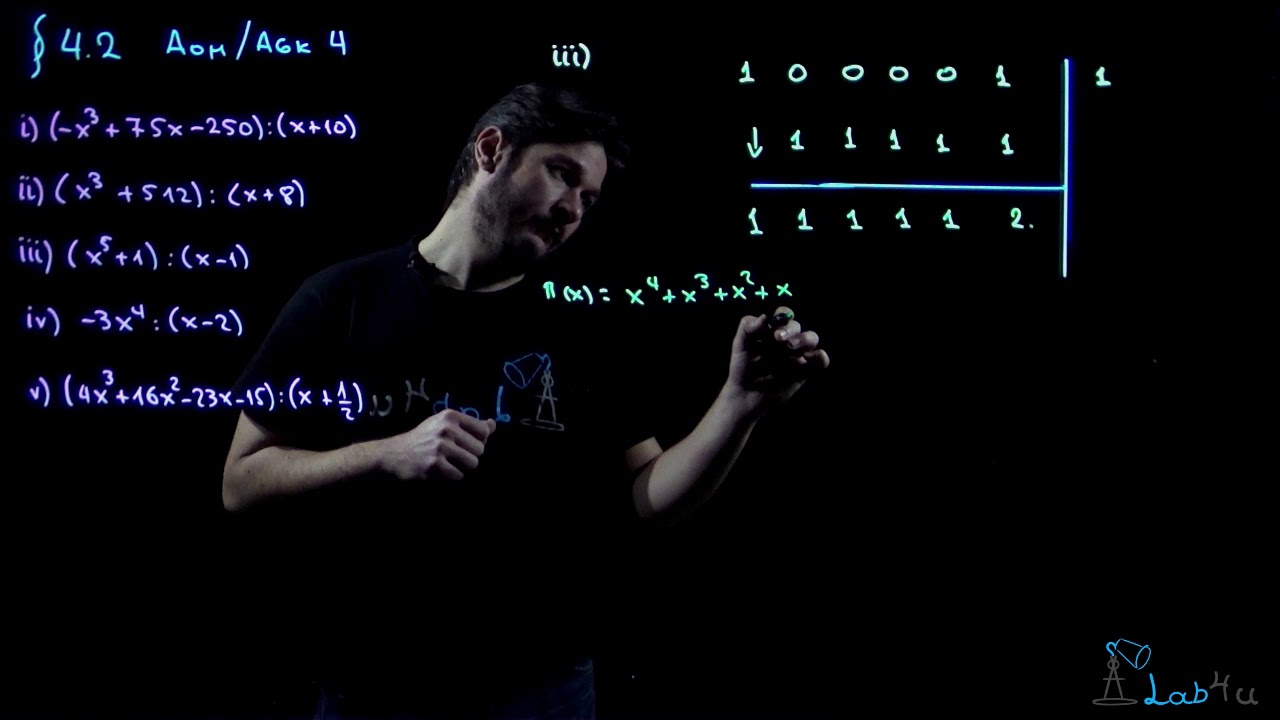 § 4.2 Δομ/Ασκ 4
i) (-x³+75x-250):(x+10)
ii) (x³ +512):(x+8)
iii) (x⁵+1):(x-1)
iv) -3x⁴:(x-2)
v) (4x³+16x²-23x-15):(x+1/2)
iii)
1 0 0 0 0 1 1
↓ 1 1 1 1 1
1 1 1 1 1 2.
π(x)= x⁴+x³+x²+x
Lab4u